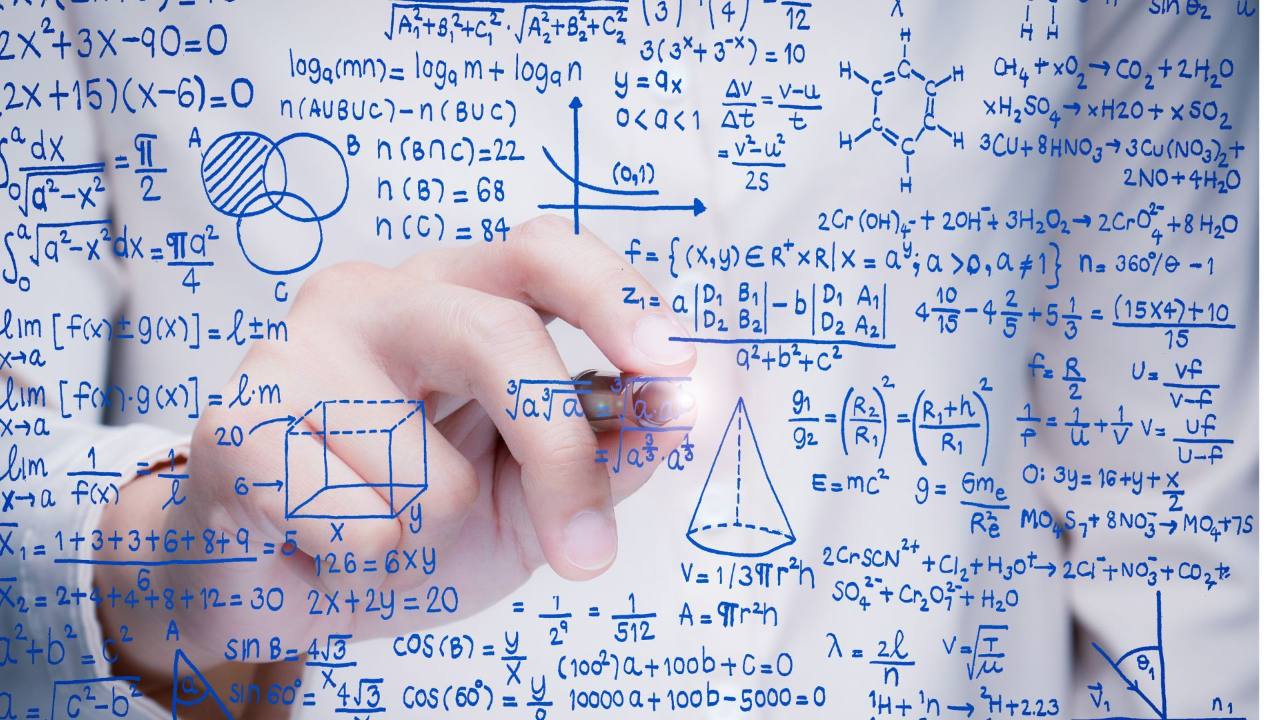 2x²+3x-90=0
(2x+15)(x-6)=0
∫₀ᵃ dx/√(a²-x²) = π/2
∫₀ᵃ √(a²-x²) dx = πa²/4
lim x→a [f(x)±g(x)] = l±m
lim x→a [f(x)·g(x)] = l·m
lim x→a 1/f(x) = 1/l
X̄₁ = (1+3+3+6+8+9)/6 = 5
X̄₂ = 2+4+4+8+12 = 30
a²+b² = c²
a = √(c²-b²)
√(A₁²+B₁²+C₁²) · √(A₂²+B₂²+C₂²)
logₐ(mn) = logₐm + logₐn
n(AUBUC)-n(BUC)
A
B
C
n(B∩C)=22
n(B) = 68
n(C) = 84
20
6
x
y
126 = 6xy
2x+2y = 20
A
a
sin B = 4√3/x
sin 60° = 4√3/x
cos(B) = y/x
cos(60°) = y/8
(3) (4) 12
3(3ˣ+3⁻ˣ) = 10
y = ax
0<a<1
(0,1)
Δv/Δt = (v-u)/t
= (v²-u²)/2s
f = {(x,y) ∈ R⁺×R | x = aʸ; a>0, a≠1}
Z₁ = (a|D₁ B₁ D₂ B₂| - b|D₁ A₁ D₂ A₂|)/(a²+b²+c²)
V = 1/3πr²h
= 1/2⁹ = 1/512
A = πr²h
(100²)a+100b+c=0
10000a+100b-5000=0
H
H
H
C
C
H
C
C
C
H
H
H
H H
sin θ₂
u
CH₄+xO₂→CO₂+2H₂O
xH₂SO₄→xH2O+xSO₂
3CU+8HNO₃→3Cu(NO₃)₂+
2NO+4H₂O
2Cr(OH)₄⁻+2OH⁻+3H₂O₂→2CrO₄²⁻+8H₂O
n= 360°/θ-1
4 10/15 - 4 2/5 + 5 1/3 = ((15x4)+10)/15
f= R/2
U= vf/(v-f)
g₁/g₂ = (R₂/R₁)² = ((R₁+h)/R₁)²
1/f = 1/u + 1/v
V= uf/(u-f)
E=mc²
g = Gmₑ/Rₑ²
O: 3y=16+y+x/2
MO₄S₇+8NO₃⁻→MO₄+7S
2CrSCN²⁺+Cl₂+H₃O⁺→2Cl⁻+NO₃⁻+CO₂+
SO₄²⁻+Cr₂O₇²⁻+H₂O
λ = 2l/n
V=√(T/μ)
¹H+¹n→²H+2.23
θ₁
V₁
n₁